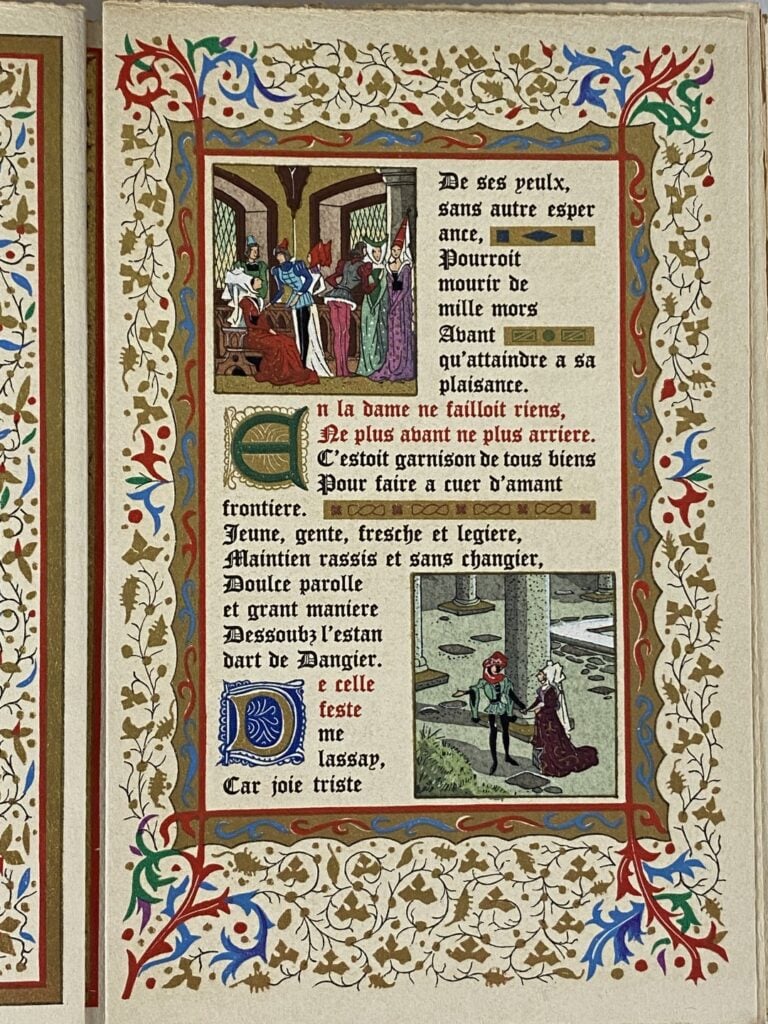 De ses yeulx,
sans autre esper
ance,
Pourroit
mourir de
mille mors
Avant
qu'attaindre a sa
plaisance.
En la dame ne failloit riens,
Ne plus avant ne plus arriere.
C'estoit garnison de tous biens
Pour faire a cuer d'amant
frontiere.
Jeune, gente, fresche et legiere,
Maintien rassis et sans changier,
Doulce parolle
et grant maniere
Dessoubz l'estan
dart de Dangier.
De celle
feste
me
lassay,
Car joie triste